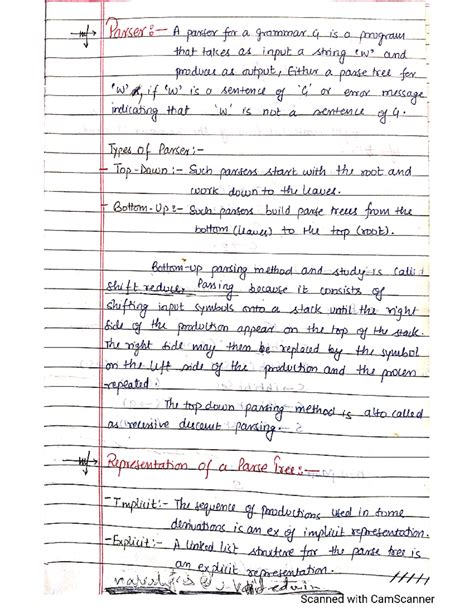 Parser:- A parser for a grammar G is a program
that takes as input a string 'w' and
produces as output, Either a parse tree for
'w', if 'w' is a sentence of 'G' or error message
indicating that 'w' is not a sentence of G.
Types of Parser:-
- Top-Down:- Such parsers start with the root and
work down to the leaves.
- Bottom-Up:- Such parsers build parse trees from the
bottom (leaves) to the top (root).
Bottom-up parsing method and study is called
shift reduces Parsing because it consists of
shifting input symbols onto a stack until the right
side of the production appear on the top of the stack.
The right side may then be replaced by the symbol
on the left side of the production and the process
repeated.
The top down parsing method is also called
as recursive descent parsing.
Representation of a Parse Tree:-
- Implicit:- The sequence of productions used in some
derivations is an ex of implicit representation.
- Explicit:- A linked list structure for the parse tree is
an explicit representation.
Scanned with CamScanner